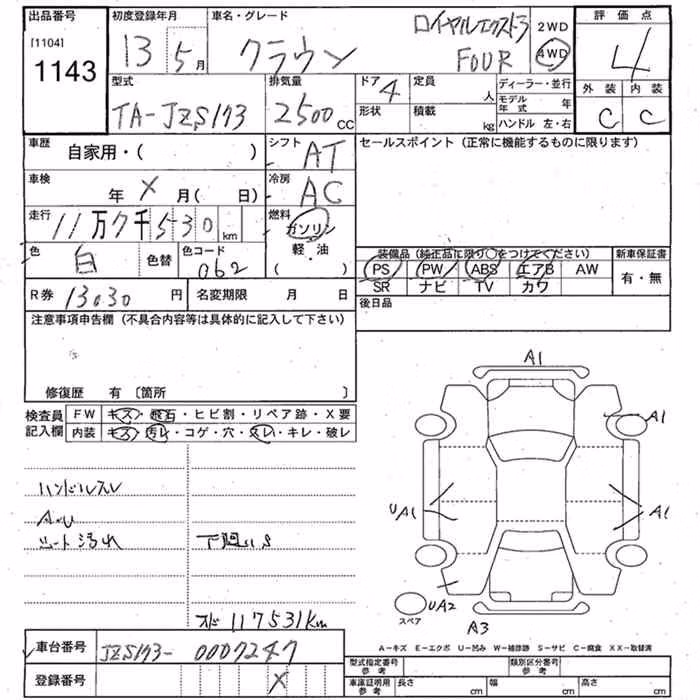 出品番号 初度登録年月 車名・グレード ロイヤルエクストラ 2WD 評価点
[1104] 13 5月 クラウン FOUR 4WD 4
1143
型式 排気量 ドア 4 定員 人 ディーラー・並行 外装 内装
TA-JZS173 2500 CC 形状 積載 kg モデル年式 年 C C
ハンドル 左・右
車歴 自家用・( ) シフト AT セールスポイント (正常に機能するものに限ります)
車検 年 X 月( 日) 冷房 AC
走行 11万7千530 km 燃料 ガソリン
軽・油
( )
色 白 色替 色コード 062
装備品 (純正品に限り○をつけてください) 新車保証書
PS PW ABS エアB AW 有・無
SR ナビ TV カワ
R券 13030 円 名変期限 月 日 後日品
注意事項申告欄 (不具合内容等は具体的に記入して下さい)
修復歴 有 〔箇所 〕
検査員記入欄 FW キズ・飛石・ヒビ割・リペア跡・X要
内装 キズ・汚レ・コゲ・穴・スレ・キレ・破レ
ハンドルスレ
シート汚れ 下廻りS
117531km
A1
A1
UA1 A1
スペア UA2
A3
A-キズ E-エクボ U-凹み W-補修跡 S-サビ C-腐食 XX-取替済
車台番号 JZS173- 0007247
登録番号 X
型式指定番号 参考 類別区分番号 参考
車庫証明用 参考 長さ cm 幅 cm 高さ cm